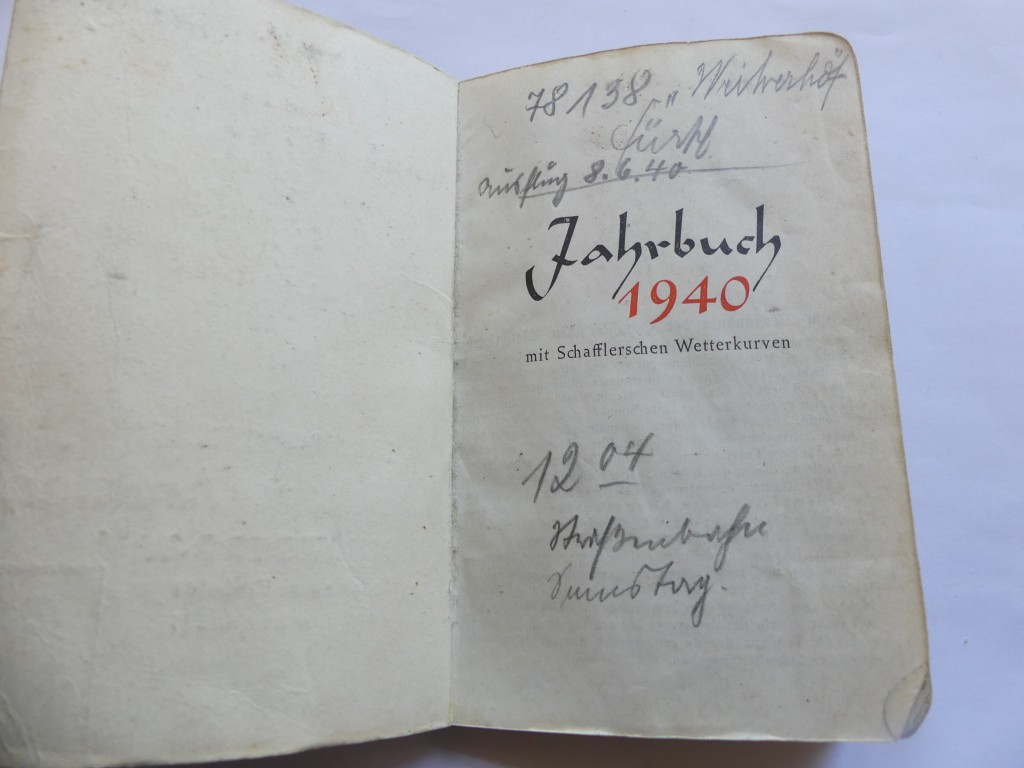 78138 „Weiherhof"
Fürth
Ausflug 8.6.40
Jahrbuch
1940
mit Schafflerschen Wetterkurven
12 04
Straßenbahn
Samstag.